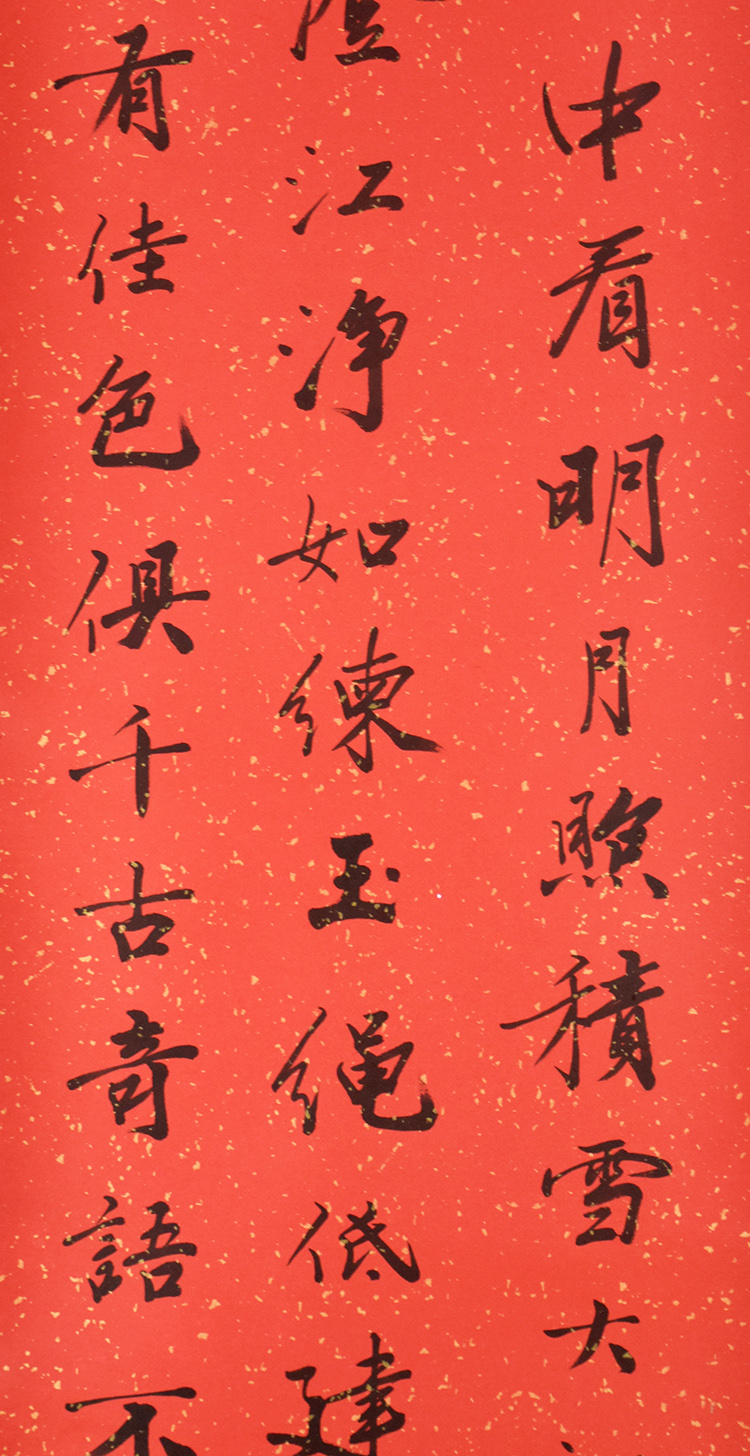 中看明月照積雪大
江淨如練玉繩低建
有佳色俱千古奇語不